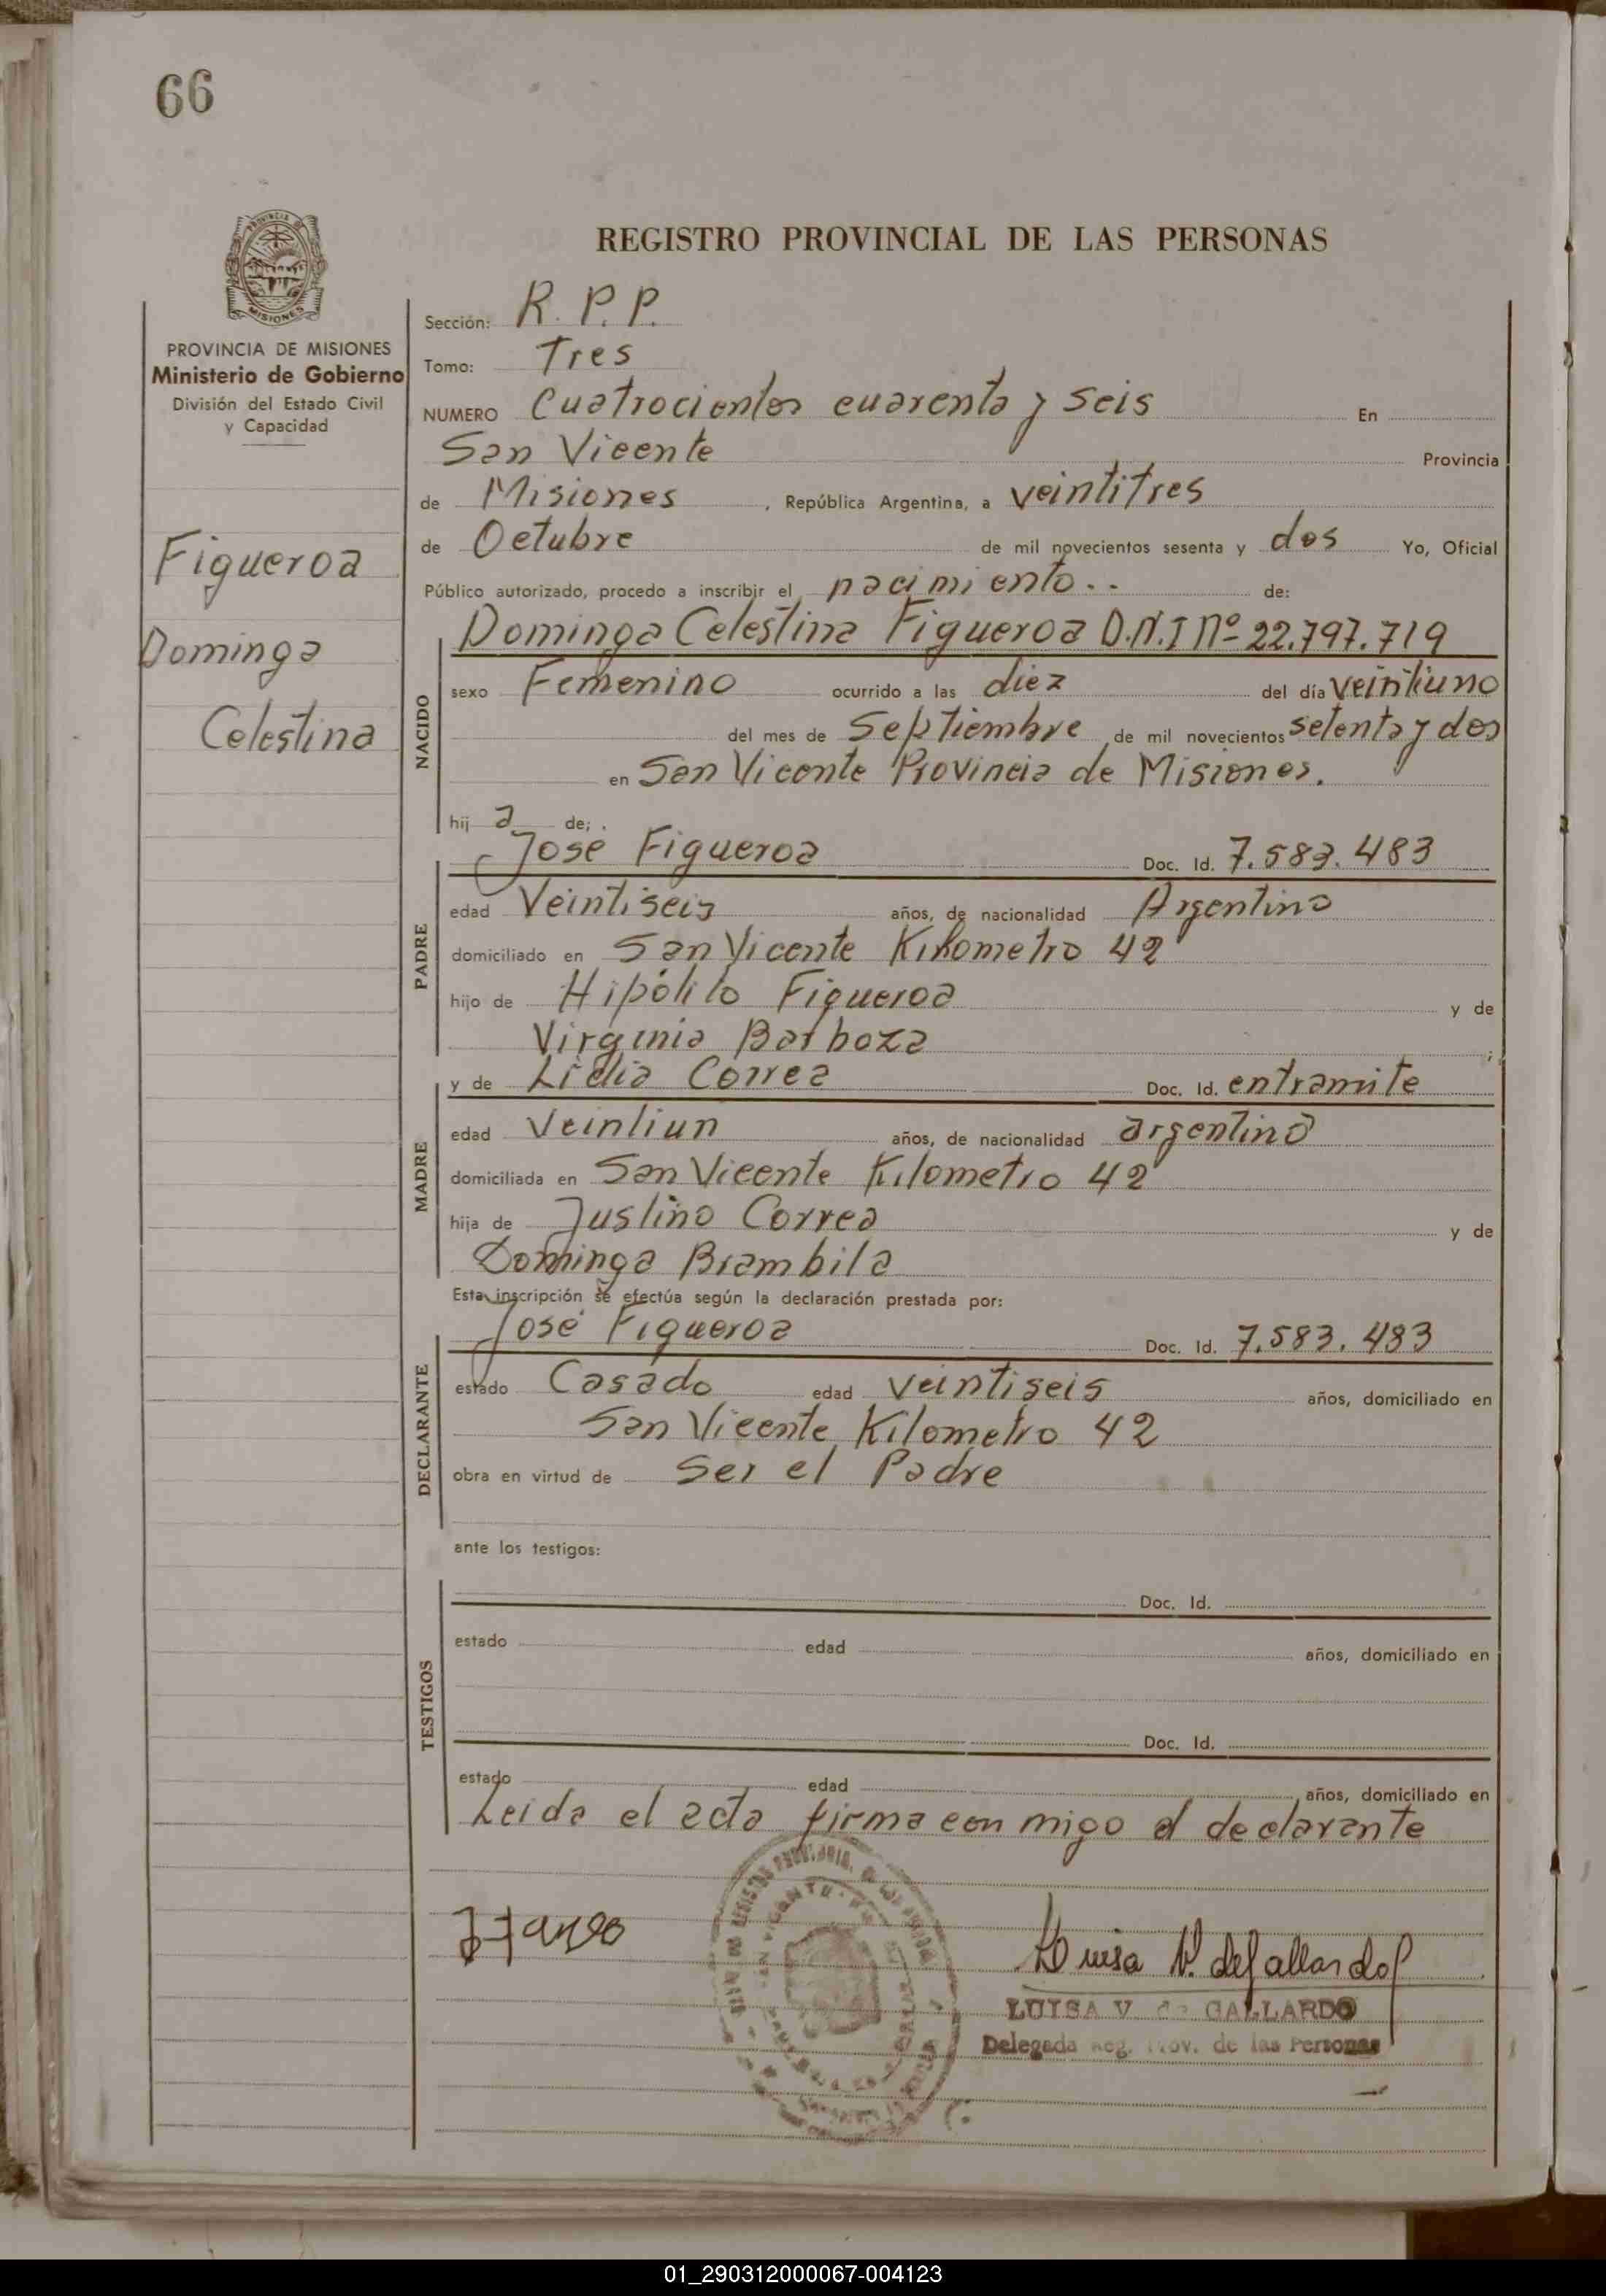 66
REGISTRO PROVINCIAL DE LAS PERSONAS
PROVINCIA DE MISIONES
Ministerio de Gobierno
División del Estado Civil
y Capacidad
Figueroa
Dominga
Celestina
Sección: R. P. P.
Tomo: Tres
NUMERO Cuatrocientos cuarenta y seis En
San Vicente Provincia
de Misiones , República Argentina, a veintitres
de Octubre de mil novecientos sesenta y dos Yo, Oficial
Público autorizado, procedo a inscribir el nacimiento.. de:
NACIDO
Dominga Celestina Figueroa D.N.I Nº 22.797.719
sexo Femenino ocurrido a las diez del día veintiuno
del mes de Septiembre de mil novecientos setenta y dos
en San Vicente Provincia de Misiones.
hij a de;
PADRE
José Figueroa Doc. Id. 7.583.483
edad Veintiseis años, de nacionalidad Argentino
domiciliado en San Vicente Kilometro 42
hijo de Hipólito Figueroa y de
Virginia Barboza ;
MADRE
y de Lidia Correa Doc. Id. entramite
edad Veintiun años, de nacionalidad argentino
domiciliada en San Vicente Kilometro 42
hija de Justino Correa y de
Dominga Brambila
Esta inscripción se efectúa según la declaración prestada por:
DECLARANTE
José Figueroa Doc. Id. 7.583.483
estado Casado edad veintiseis años, domiciliado en
San Vicente Kilometro 42
obra en virtud de Ser el Padre
ante los testigos:
TESTIGOS
Doc. Id.
estado edad años, domiciliado en
Doc. Id.
estado edad años, domiciliado en
Leida el acta firma con migo el declarante
Luisa V. de Gallardo
LUISA V de GALLARDO
Delegada Reg. Prov. de las Personas
01_290312000067-004123